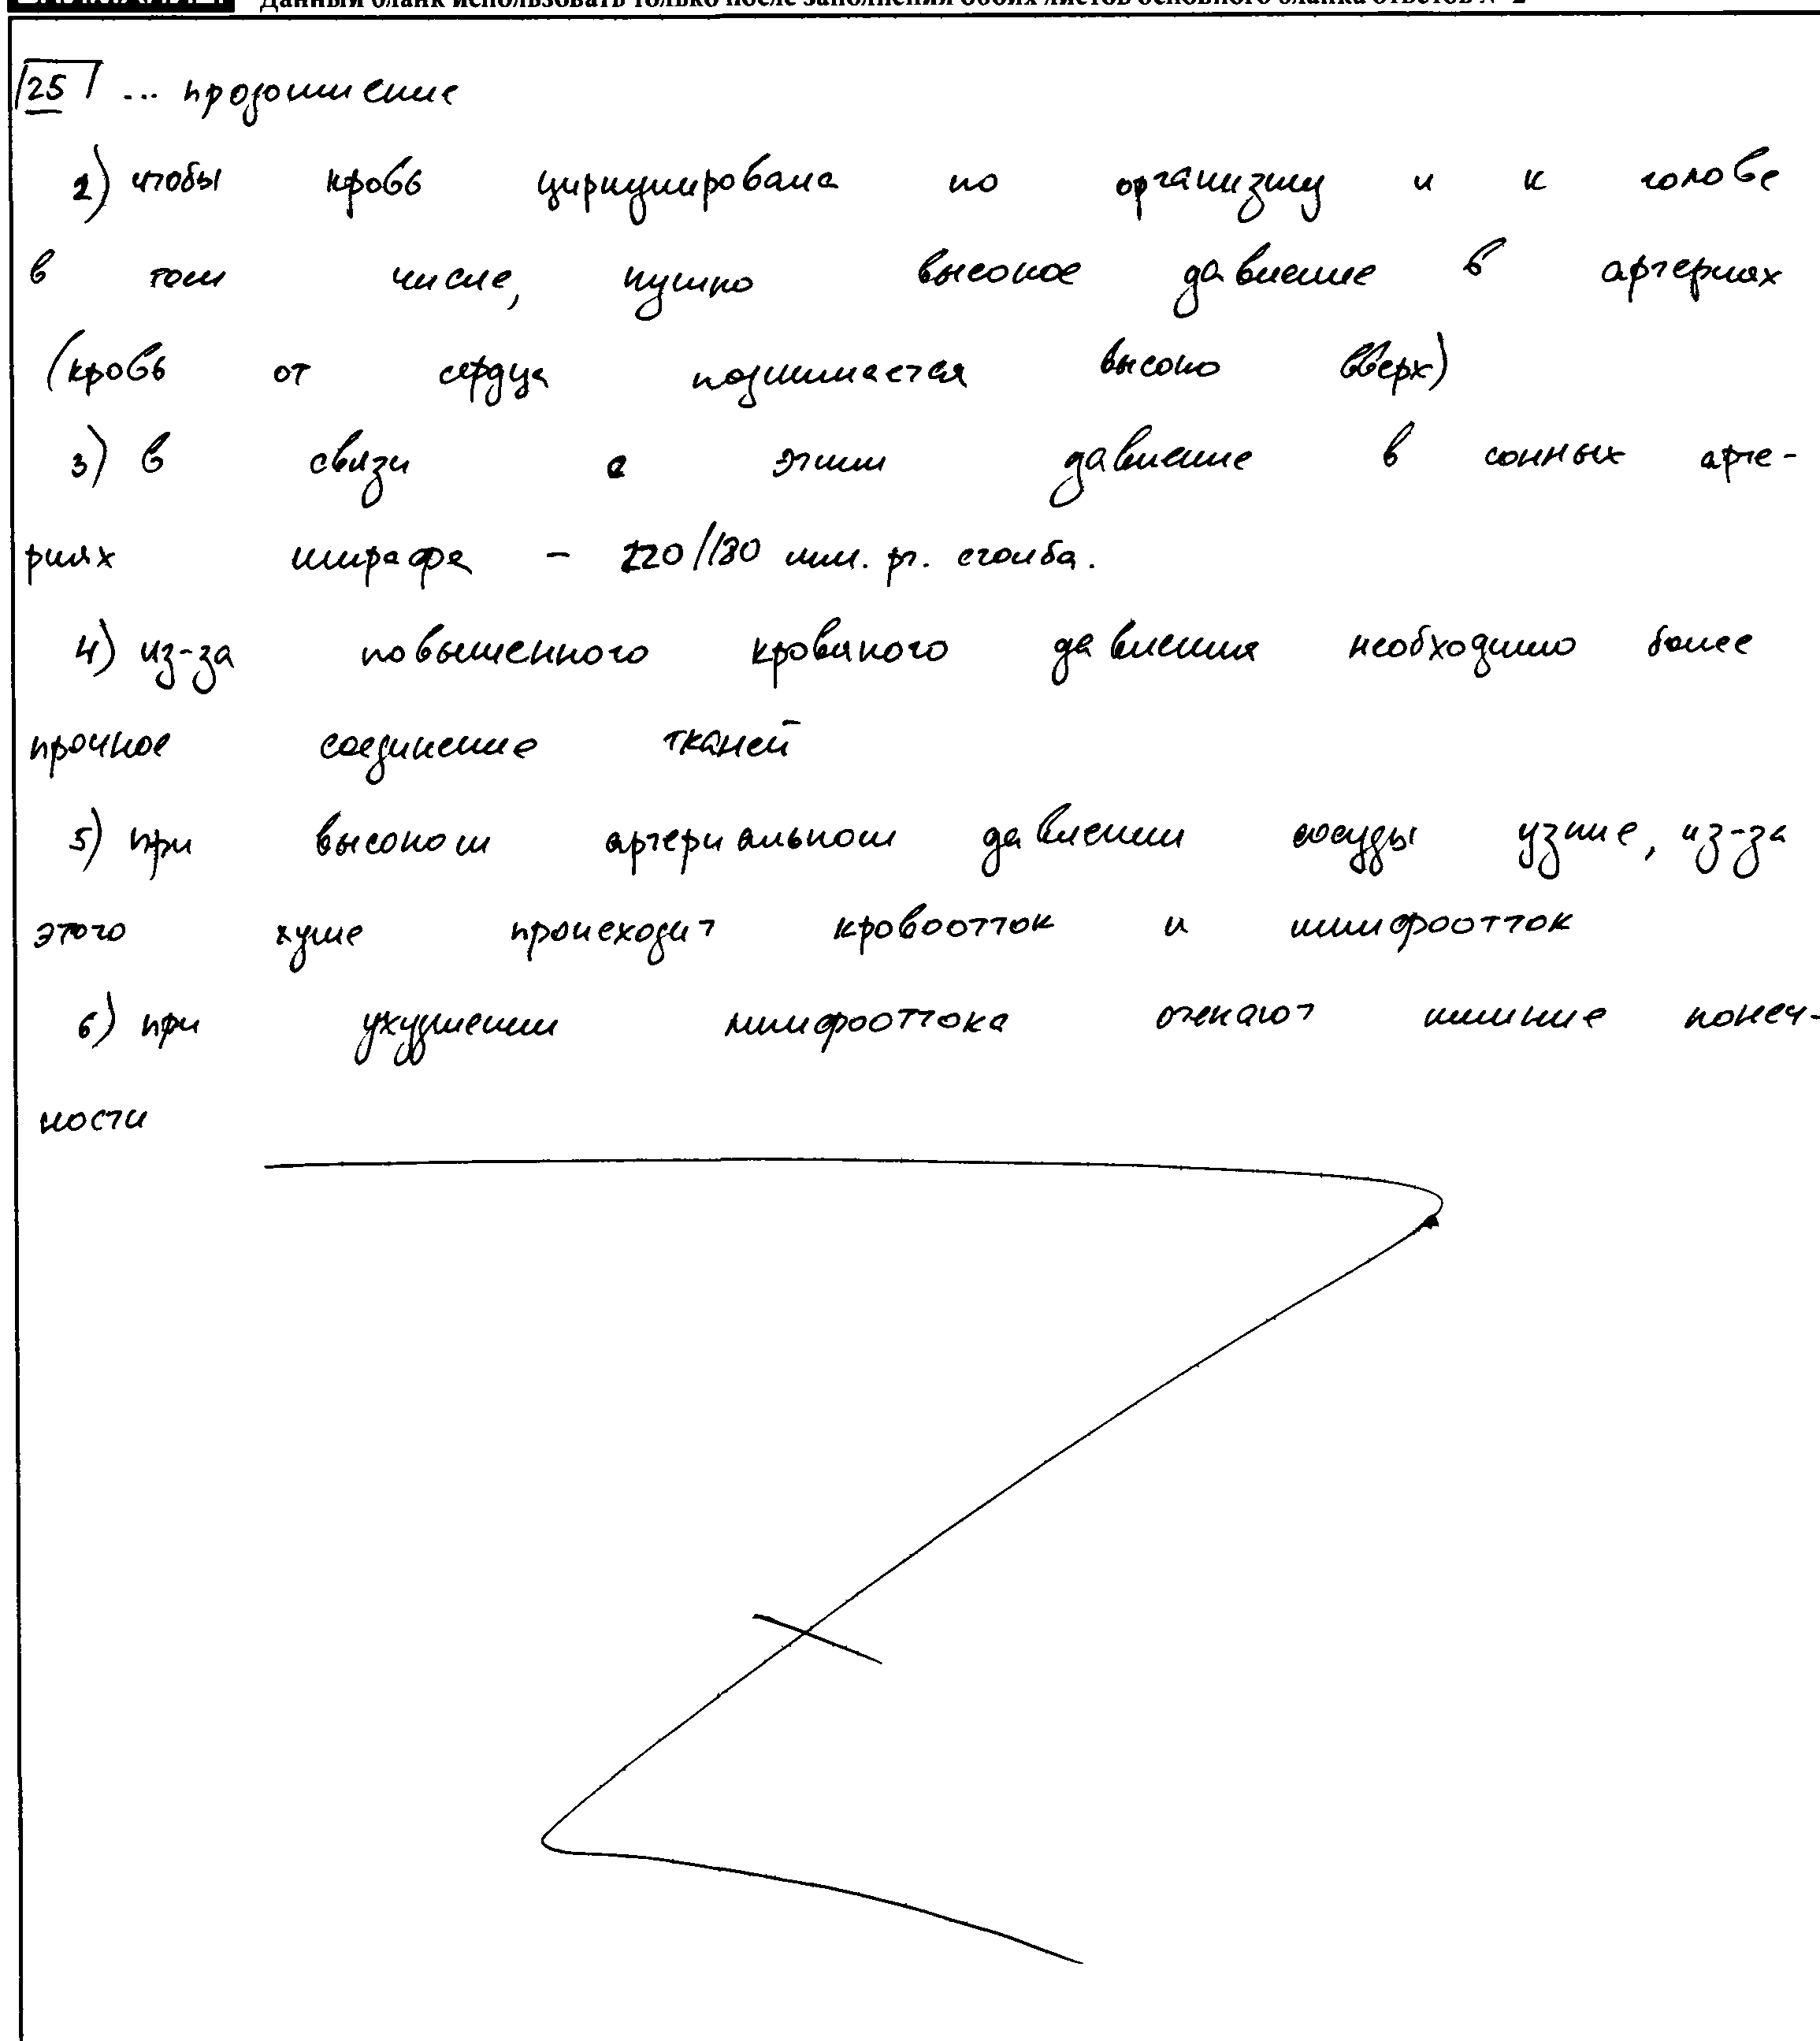 Данный бланк использовать только после заполнения обоих листов основного бланка ответов № 2
25 ... продолжение
2) чтобы кровь циркулировала по организму и к голове
в том числе, нужно высокое давление в артериях
(кровь от сердца поднимается высоко вверх)
3) в связи с этим давление в сонных арте-
риях жирафа – 220/180 мм. рт. столба.
4) из-за повышенного кровяного давления необходимо более
прочное соединение тканей
5) при высоком артериальном давлении сосуды узкие, из-за
этого хуже происходит кровоотток и лимфоотток
6) при ухудшении лимфооттока отекают нижние конеч-
ности